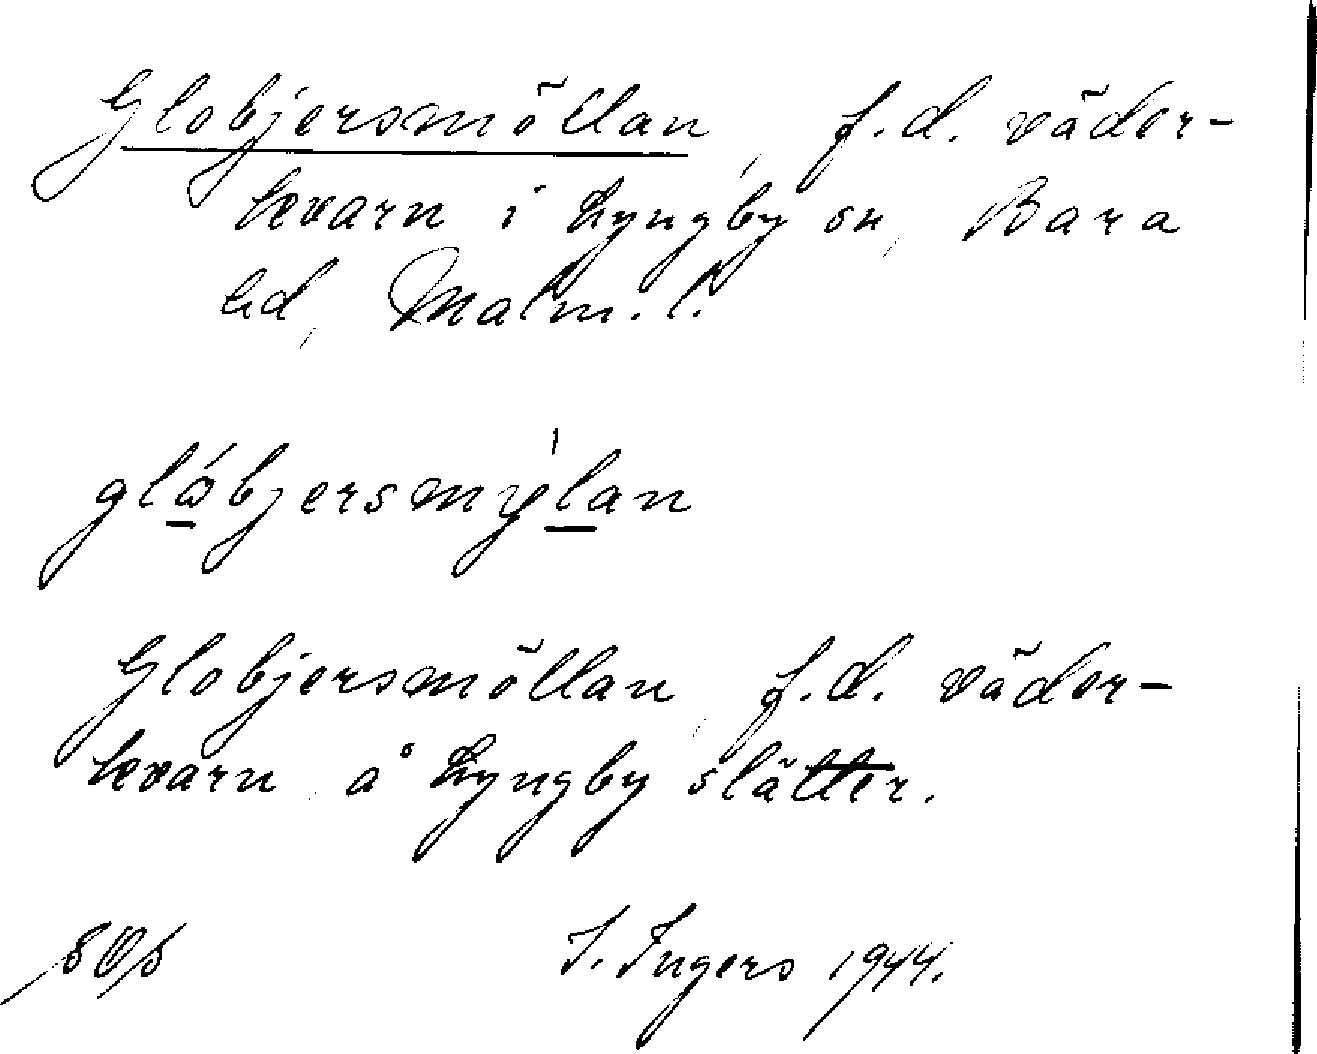 Globjersmöllan, f.d. väder-
kvarn i Lyngby sn, Bara
hd, Malm. l.
glåbjersmýlan
Globjersmöllan, f.d. väder-
kvarn å Lyngby slätter.
I. Ingers 1944.